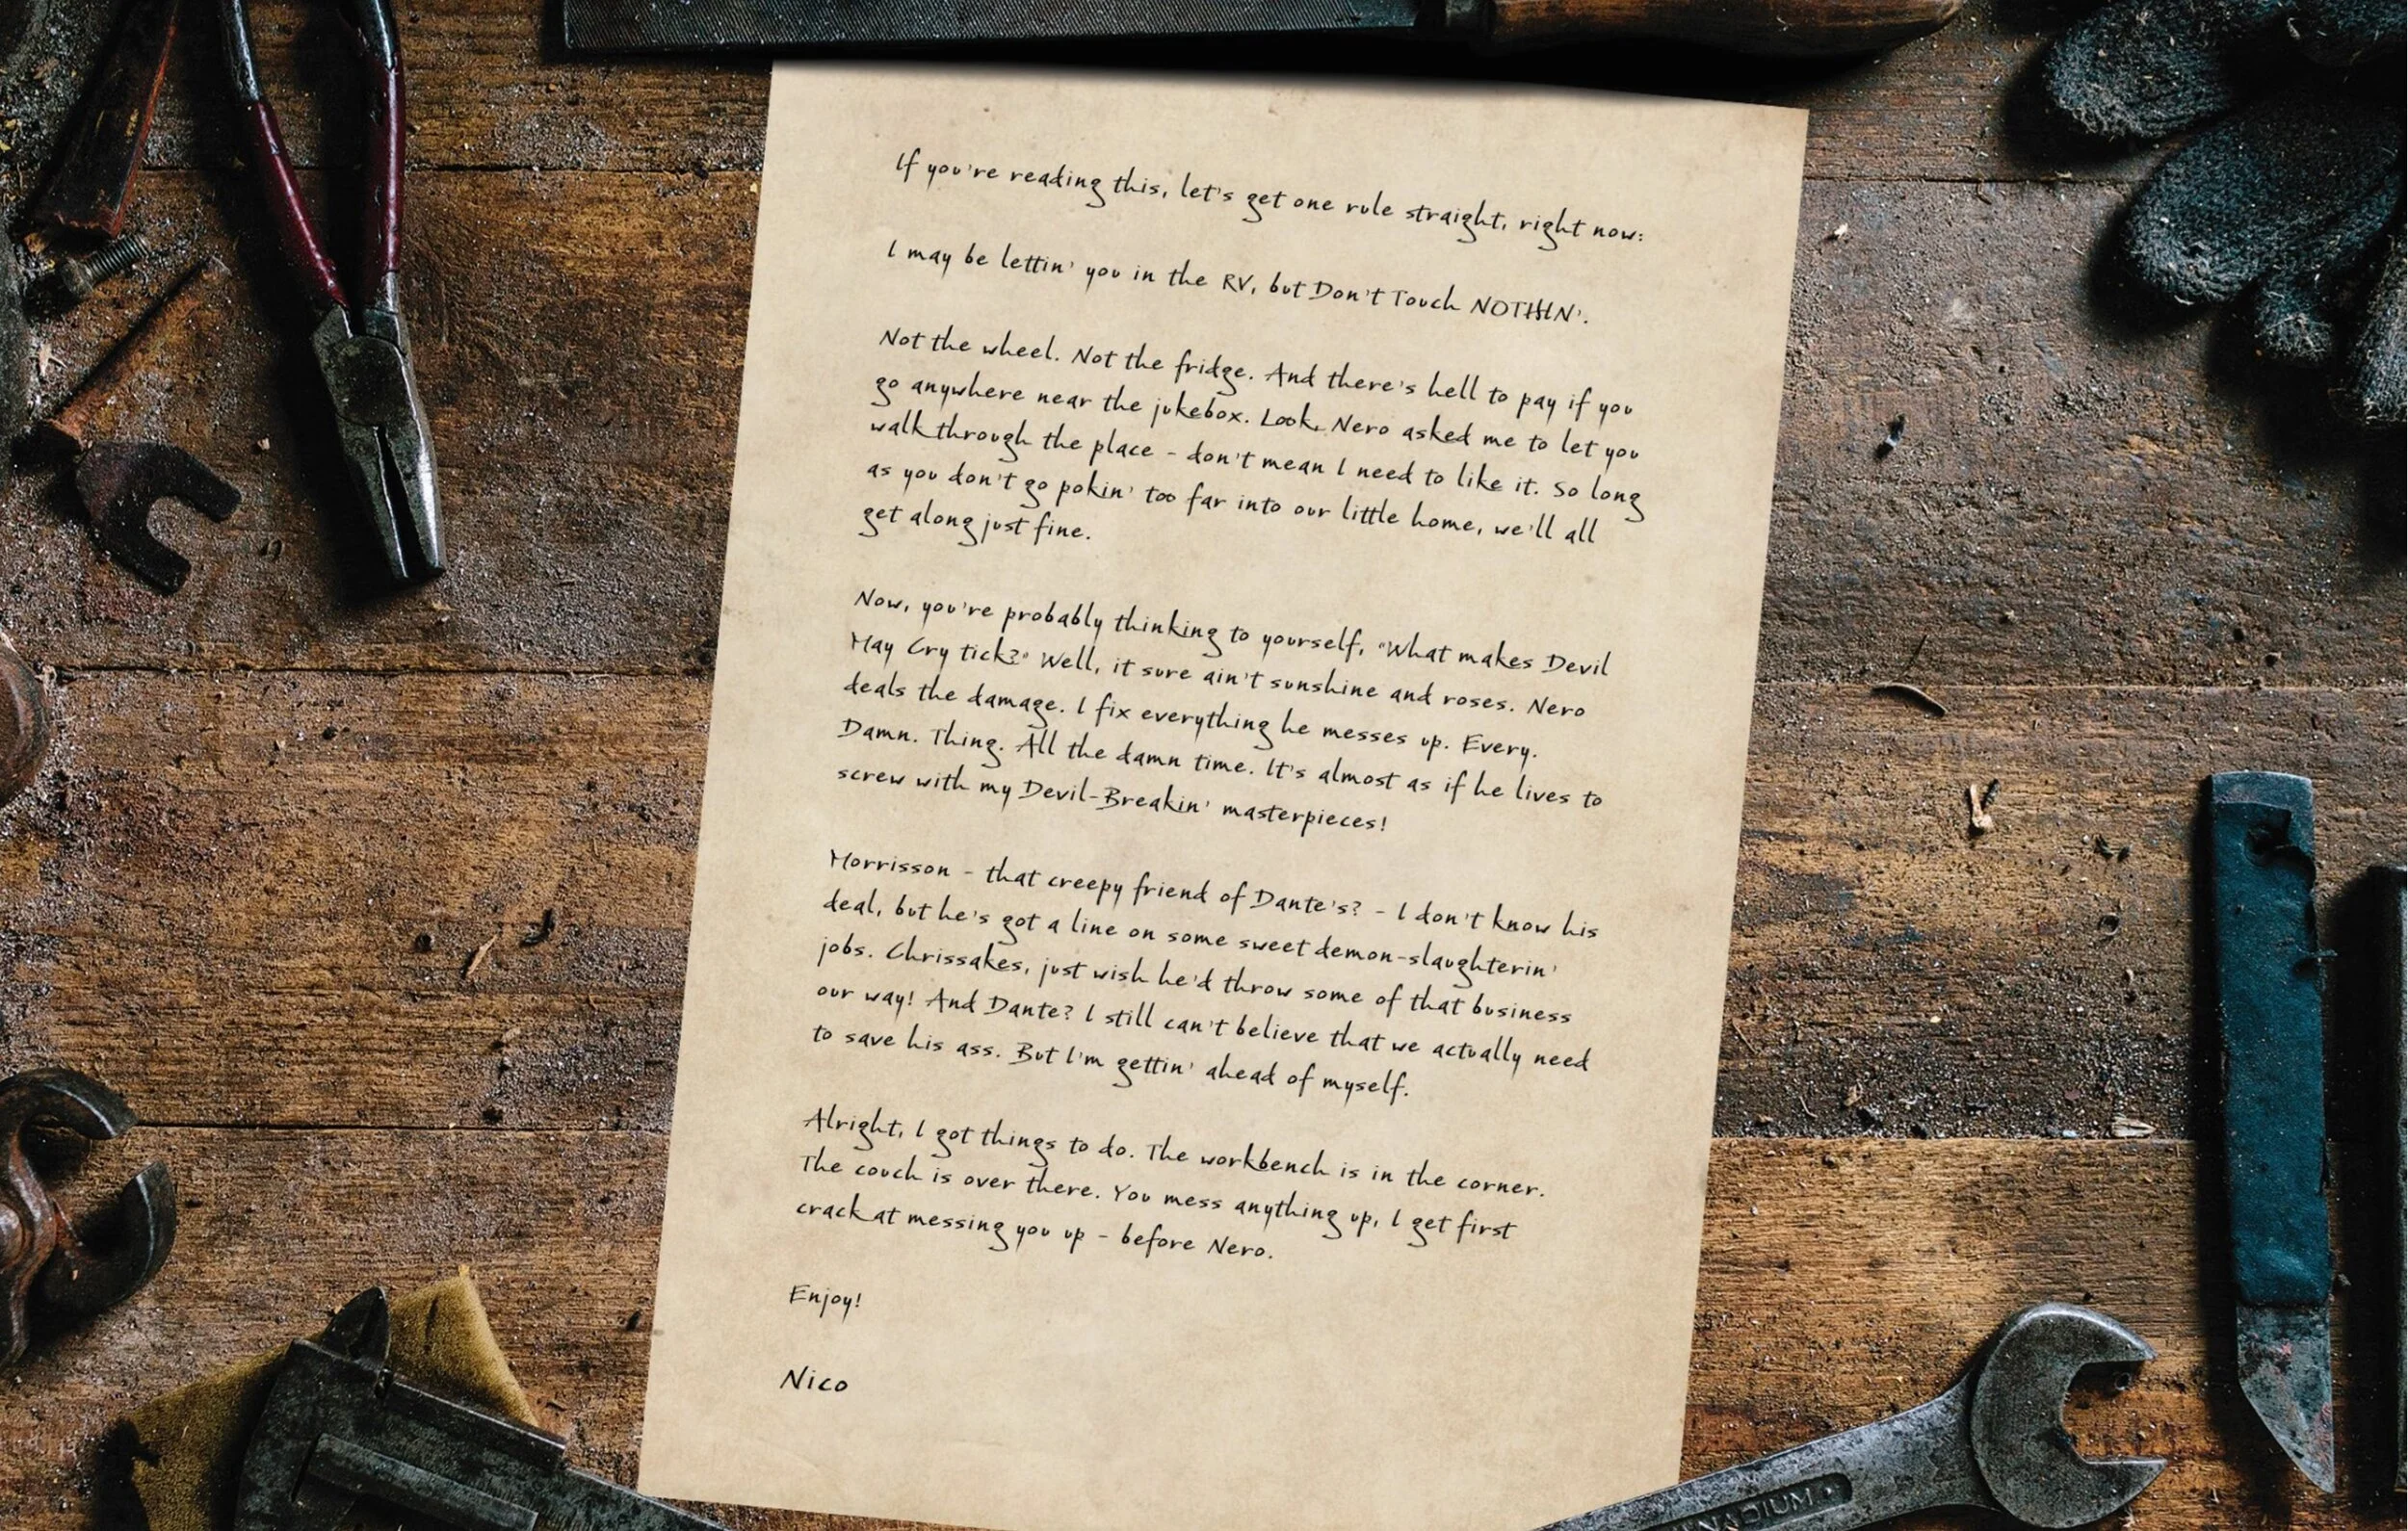 If you're reading this, let's get one rule straight, right now:
I may be lettin' you in the RV, but Don't Touch NOTHIN'.
Not the wheel. Not the fridge. And there's hell to pay if you
go anywhere near the jukebox. Look, Nero asked me to let you
walk through the place - don't mean I need to like it. So long
as you don't go pokin' too far into our little home, we'll all
get along just fine.
Now, you're probably thinking to yourself, "What makes Devil
May Cry tick?" Well, it sure ain't sunshine and roses. Nero
deals the damage. I fix everything he messes up. Every.
Damn. Thing. All the damn time. It's almost as if he lives to
screw with my Devil-Breakin' masterpieces!
Morrisson - that creepy friend of Dante's? - I don't know his
deal, but he's got a line on some sweet demon-slaughterin'
jobs. Chrissakes, just wish he'd throw some of that business
our way! And Dante? I still can't believe that we actually need
to save his ass. But I'm gettin' ahead of myself.
Alright, I got things to do. The workbench is in the corner.
The couch is over there. You mess anything up, I get first
crack at messing you up - before Nero.
Enjoy!
Nico